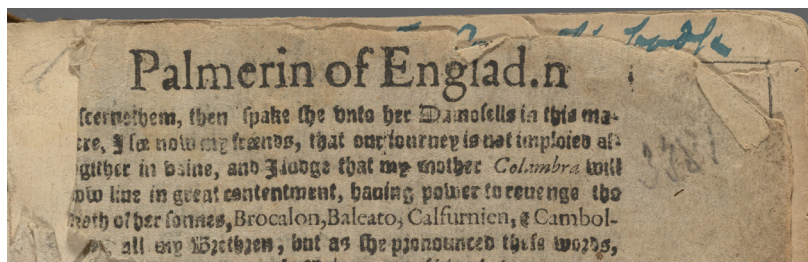 Palmerin of Englad.n
scernethem, then spake she vnto her Damosells in this ma-
ere, I see now my freends, that our iourney is not imploied al-
ogither in vaine, and I iudge that my mother Colambra will
ow liue in great contentment, hauing power to reuenge tho
eath of her sonnes, Brocalon, Baleato, Calfurnien, & Cambol-
all my Brethren, but as she pronounced these words,
3381